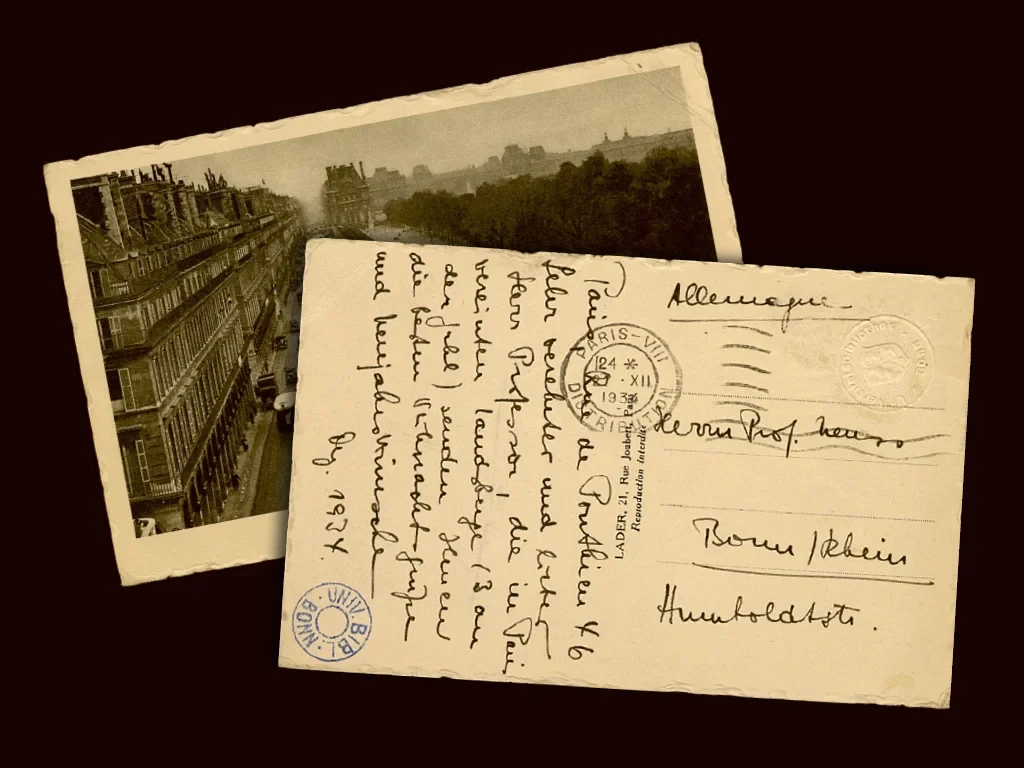 Paris, Rue de Ponthieu 46
Sehr verehrter und lieber
Herr Professor, die in Paris
vereinten Landsberge (3 an
der Zahl) senden Ihnen
die besten
und Neujahrswünsche
Dez. 1934.
UNIV. BIBL. BONN
LADER, 21, Rue Joubert, Paris
Reproduction Interdite
PARIS-VIII
24 *
XII
DISTRIBUTION
Allemagne
Herrn Prof. Neuss
Bonn/Rhein
Humboldtstr.